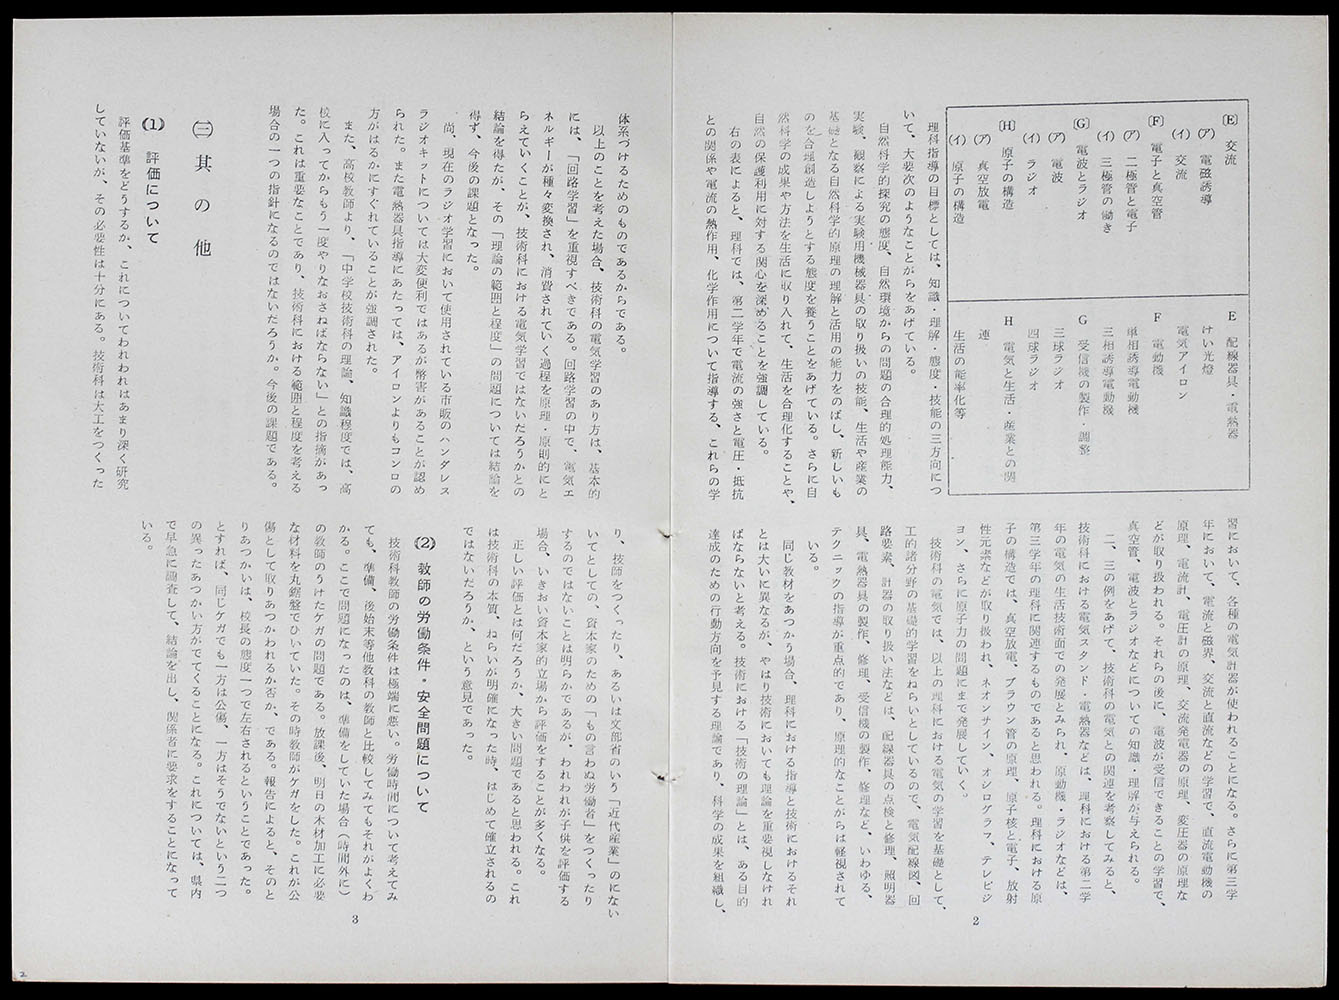 〔E〕 交流
(ア) 電磁誘導
(イ) 交流
〔F〕 電子と真空管
(ア) 二極管と電子
(イ) 三極管の働き
〔G〕 電波とラジオ
(ア) 電波
(イ) ラジオ
〔H〕 原子の構造
(ア) 真空放電
(イ) 原子の構造
E 配線器具・電熱器
けい光燈
電気アイロン
F 電動機
単相誘導電動機
三相誘導電動機
G 受信機の製作・調整
三球ラジオ
四球ラジオ
H 電気と生活・産業との関
連
生活の能率化等
理科指導の目標としては、知識・理解・態度・技能の三方向につ
いて、大要次のようなことがらをあげている。
自然科学的探究の態度、自然環境からの問題の合理的処理能力、
実験、観察による実験用機械器具の取り扱いの技能、生活や産業の
基礎となる自然科学的原理の理解と活用の能力をのばし、新しいも
のを合理創造しようとする態度を養うことをあげている。さらに自
然科学の成果や方法を生活に取り入れて、生活を合理化することや、
自然の保護利用に対する関心を深めることを強調している。
右の表によると、理科では、第二学年で電流の強さと電圧・抵抗
との関係や電流の熱作用、化学作用について指導する、これらの学
習において、各種の電気計器が使われることになる。さらに第三学
年において、電流と磁界、交流と直流などの学習で、直流電動機の
原理、電流計、電圧計の原理、交流発電器の原理、変圧器の原理な
どが取り扱われる。それらの後に、電波が受信できることの学習で、
真空管、電波とラジオなどについての知識・理解が与えられる。
二、三の例をあげて、技術科の電気との関連を考察してみると、
技術科における電気スタンド・電熱器などは、理科における第二学
年の電気の生活技術面での発展とみられ、原動機・ラジオなどは、
第三学年の理科に関連するものであると思われる。理科における原
子の構造では、真空放電、ブラウン管の原理、原子核と電子、放射
性元素などが取り扱われ、ネオンサイン、オシログラフ、テレビジ
ョン、さらに原子力の問題にまで発展していく。
技術科の電気では、以上の理科における電気の学習を基礎として、
工的諸分野の基礎的学習をねらいとしているので、電気配線図、回
路要素、計器の取り扱い法などは、配線器具の点検と修理、照明器
具、電熱器具の製作、修理、受信機の製作、修理など、いわゆる、
テクニックの指導が重点的であり、原理的なことがらは軽視されて
いる。
同じ教材をあつかう場合、理科における指導と技術におけるそれ
とは大いに異なるが、やはり技術においても理論を重要視しなけれ
ばならないと考える。技術における「技術の理論」とは、ある目的
達成のための行動方向を予見する理論であり、科学の成果を組織し、
2
体系づけるためのものであるからである。
以上のことを考えた場合、技術科の電気学習のあり方は、基本的
には、「回路学習」を重視すべきである。回路学習の中で、電気エ
ネルギーが種々変換され、消費されていく過程を原理・原則的にと
らえていくことが、技術科における電気学習ではないだろうかとの
結論を得たが、その「理論の範囲と程度」の問題については結論を
得ず、今後の課題となった。
尚、現在のラジオ学習において使用されている市販のハンダレス
ラジオキットについては大変便利ではあるが弊害があることが認め
られた。また電熱器具指導にあたっては、アイロンよりもコンロの
方がはるかにすぐれていることが強調された。
また、高校教師より、「中学校技術科の理論、知識程度では、高
校に入ってからもう一度やりなおさねばならない」との指摘があっ
た。これは重要なことであり、技術科における範囲と程度を考える
場合の一つの指針になるのではないだろうか。今後の課題である。
㈢ 其の他
(1) 評価について
評価基準をどうするか、これについてわれわれはあまり深く研究
していないが、その必要性は十分にある。技術科は大工をつくった
り、技師をつくったり、あるいは文部省のいう「近代産業」のにない
いてとしての、資本家のための「もの言わぬ労働者」をつくったり
するのではないことは明らかであるが、われわれが子供を評価する
場合、いきおい資本家的立場から評価をすることが多くなる。
正しい評価とは何だろうか、大きい問題であると思われる。これ
は技術科の本質、ねらいが明確になった時、はじめて確立されるの
ではないだろうか、という意見であった。
(2) 教師の労働条件・安全問題について
技術科教師の労働条件は極端に悪い。労働時間について考えてみ
ても、準備、後始末等他教科の教師と比較してみてもそれがよくわ
かる。ここで問題になったのは、準備をしていた場合(時間外に)
の教師のうけたケガの問題である。放課後、明日の木材加工に必要
な材料を丸鋸盤でひいていた。その時教師がケガをした。これが公
傷として取りあつかわれるか否か、である。報告によると、そのと
りあつかいは、校長の態度一つで左右されるということであった。
とすれば、同じケガでも一方は公傷、一方はそうでないという二つ
の異ったあつかい方がでてくることになる。これについては、県内
で早急に調査して、結論を出し、関係者に要求をすることになって
いる。
3
2